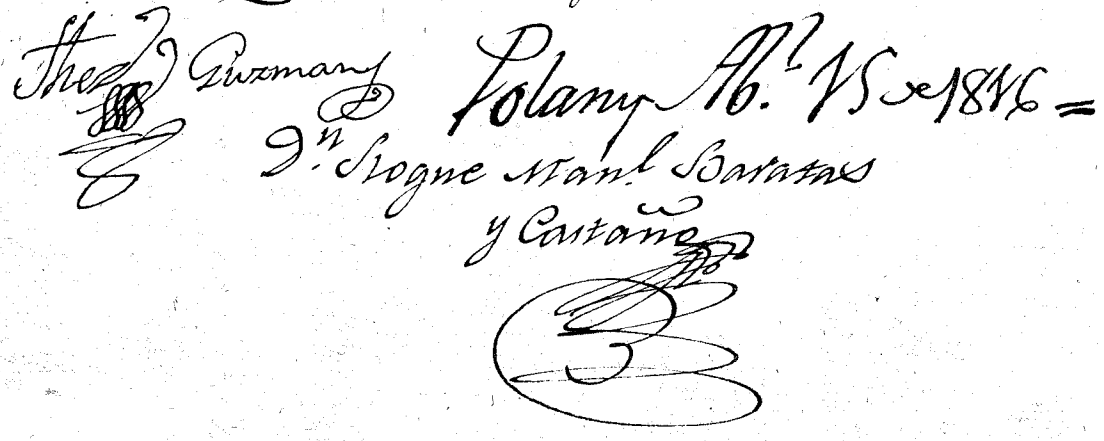 Guzman Polan y Ab.l 15 de 1816 =
D.n Roque Man.l Barajas
y Castaño